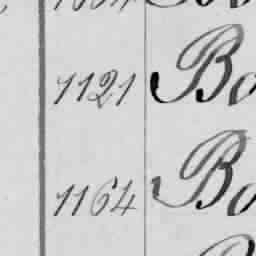 1121 Bo
1164 Bo